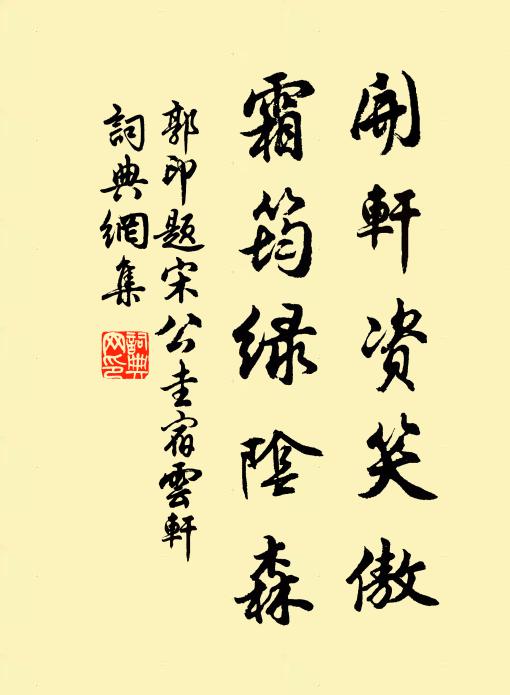 開軒資笑傲
霜筠緑陰森
郭印題宋公圭宿雲軒
詞典網集
詞典網印